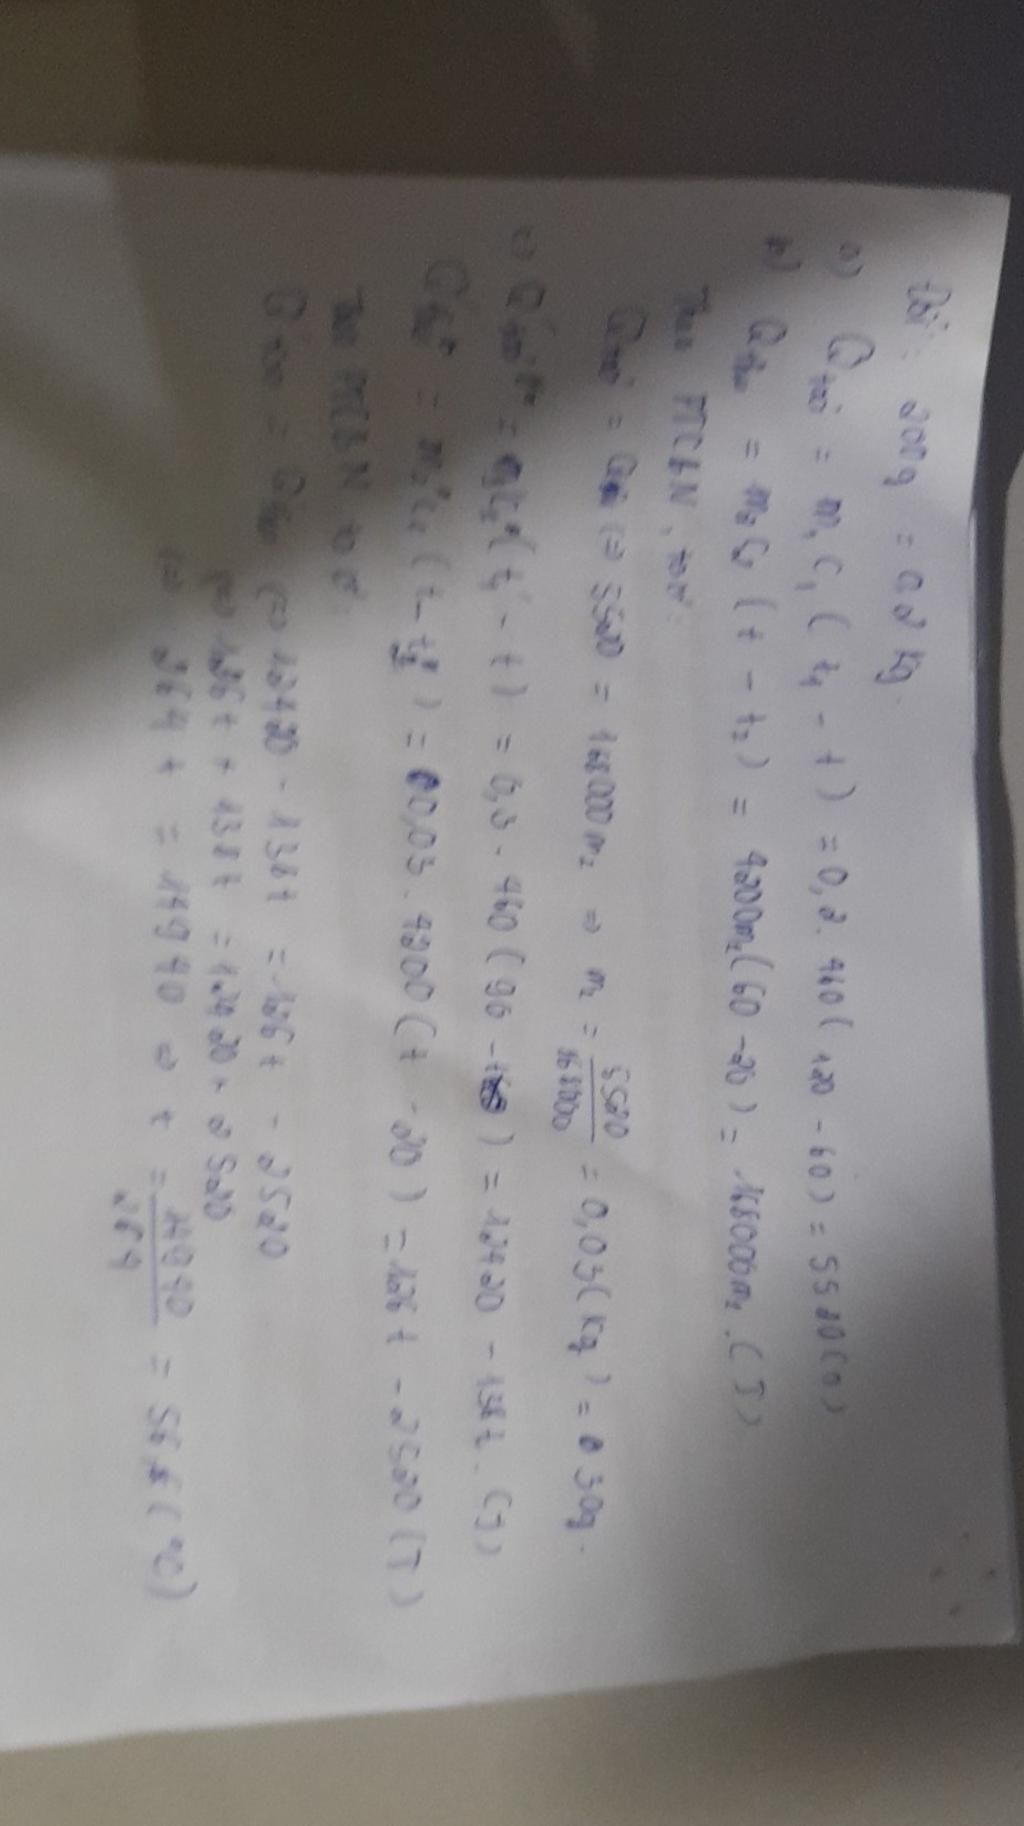 Đổi: 200g = 0,2 kg.
a) Q tỏa = m₁c₁(t₁ - t) = 0,2. 460(120 - 60) = 5520(J)
b) Q thu = m₂c₂(t - t₂) = 4200m₂(60 - 20) = 168000m₂.(J)
Theo PTCBN, ta có:
Q tỏa = Q thu (=) 5520 = 168000m₂ => m₂ = 5520/168000 = 0,03(kg) = 30g.
c) Q tỏa = (t₁ - t) = 0,3. 460(90 - t) = 12420 - 138t.(J)
Q thu = (t - t₂) = 0,03. 4200(t - 20) = 126t - 2520(J)
Theo PTCBN ta có:
Q tỏa = Q thu (=) 12420 - 138t = 126t - 2520
(=) 126t + 138t = 12420 + 2520
(=) 264t = 14940 => t = 14940/264 = 56,6(°C)